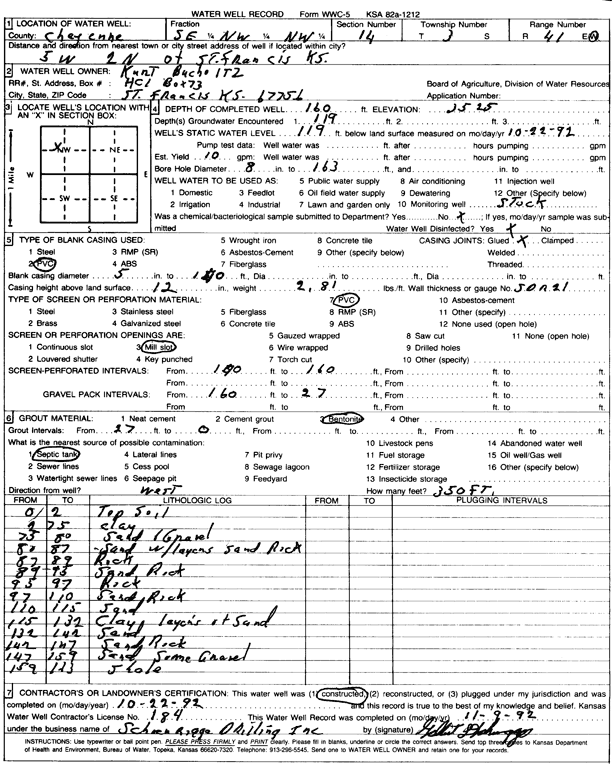 WATER WELL RECORD Form WWC-5 KSA 82a-1212
1 LOCATION OF WATER WELL: Fraction Section Number Township Number Range Number
County: Cheyenne SE ¼ NW ¼ NW ¼ 14 T 3 S R 41 E/W
Distance and direction from nearest town or city street address of well if located within city?
5W 2N of ST. Francis KS.
2 WATER WELL OWNER: Kurt Bucholtz
RR#, St. Address, Box # : HC1 Box 73 Board of Agriculture, Division of Water Resources
City, State, ZIP Code : ST. Francis KS. 67756 Application Number:
3 LOCATE WELL'S LOCATION WITH AN "X" IN SECTION BOX:
N
X NW NE
W E
SW SE
S
1 Mile
4 DEPTH OF COMPLETED WELL 160 ft. ELEVATION: 3525
Depth(s) Groundwater Encountered 1. 119 ft. 2. ft. 3. ft.
WELL'S STATIC WATER LEVEL 119 ft. below land surface measured on mo/day/yr 10-22-92
Pump test data: Well water was ft. after hours pumping gpm
Est. Yield 10 gpm: Well water was ft. after hours pumping gpm
Bore Hole Diameter 8 in. to 163 ft., and in. to ft.
WELL WATER TO BE USED AS: 5 Public water supply 8 Air conditioning 11 Injection well
1 Domestic 3 Feedlot 6 Oil field water supply 9 Dewatering 12 Other (Specify below)
2 Irrigation 4 Industrial 7 Lawn and garden only 10 Monitoring well STock
Was a chemical/bacteriological sample submitted to Department? Yes No X; If yes, mo/day/yr sample was submitted
Water Well Disinfected? Yes X No
5 TYPE OF BLANK CASING USED: 5 Wrought iron 8 Concrete tile CASING JOINTS: Glued X Clamped
1 Steel 3 RMP (SR) 6 Asbestos-Cement 9 Other (specify below) Welded
2 PVC 4 ABS 7 Fiberglass Threaded
Blank casing diameter 5 in. to 140 ft., Dia in. to ft., Dia in. to ft.
Casing height above land surface 12 in., weight 2.81 lbs./ft. Wall thickness or gauge No. SDR21
TYPE OF SCREEN OR PERFORATION MATERIAL: 7 PVC 10 Asbestos-cement
1 Steel 3 Stainless steel 5 Fiberglass 8 RMP (SR) 11 Other (specify)
2 Brass 4 Galvanized steel 6 Concrete tile 9 ABS 12 None used (open hole)
SCREEN OR PERFORATION OPENINGS ARE: 5 Gauzed wrapped 8 Saw cut 11 None (open hole)
1 Continuous slot 3 Mill slot 6 Wire wrapped 9 Drilled holes
2 Louvered shutter 4 Key punched 7 Torch cut 10 Other (specify)
SCREEN-PERFORATED INTERVALS: From 140 ft. to 160 ft., From ft. to ft.
From ft. to ft., From ft. to ft.
GRAVEL PACK INTERVALS: From 160 ft. to 27 ft., From ft. to ft.
From ft. to ft., From ft. to ft.
6 GROUT MATERIAL: 1 Neat cement 2 Cement grout 3 Bentonite 4 Other
Grout Intervals: From 27 ft. to 0 ft., From ft. to ft., From ft. to ft.
What is the nearest source of possible contamination: 10 Livestock pens 14 Abandoned water well
1 Septic tank 4 Lateral lines 7 Pit privy 11 Fuel storage 15 Oil well/Gas well
2 Sewer lines 5 Cess pool 8 Sewage lagoon 12 Fertilizer storage 16 Other (specify below)
3 Watertight sewer lines 6 Seepage pit 9 Feedyard 13 Insecticide storage
Direction from well? West How many feet? 350 FT.
FROM TO LITHOLOGIC LOG FROM TO PLUGGING INTERVALS
0 2 Top Soil
2 75 Clay
75 80 Sand & Gravel
80 87 Sand w/layers Sand Rock
87 89 Rock
89 95 Sand Rock
95 97 Rock
97 110 Sand Rock
110 115 Sand
115 132 Clay layers of Sand
132 142 Sand
142 147 Sand Rock
147 159 Sand Some Gravel
159 163 Shale
7 CONTRACTOR'S OR LANDOWNER'S CERTIFICATION: This water well was (1) constructed, (2) reconstructed, or (3) plugged under my jurisdiction and was
completed on (mo/day/year) 10-22-92 and this record is true to the best of my knowledge and belief. Kansas
Water Well Contractor's License No. 184 This Water Well Record was completed on (mo/day/yr) 11-9-92
under the business name of Schmucker Drilling Inc by (signature)
INSTRUCTIONS: Use typewriter or ball point pen. PLEASE PRESS FIRMLY and PRINT clearly. Please fill in blanks, underline or circle the correct answers. Send top three copies to Kansas Department
of Health and Environment, Bureau of Water, Topeka, Kansas 66620-7320. Telephone: 913-296-5545. Send one to WATER WELL OWNER and retain one for your records.